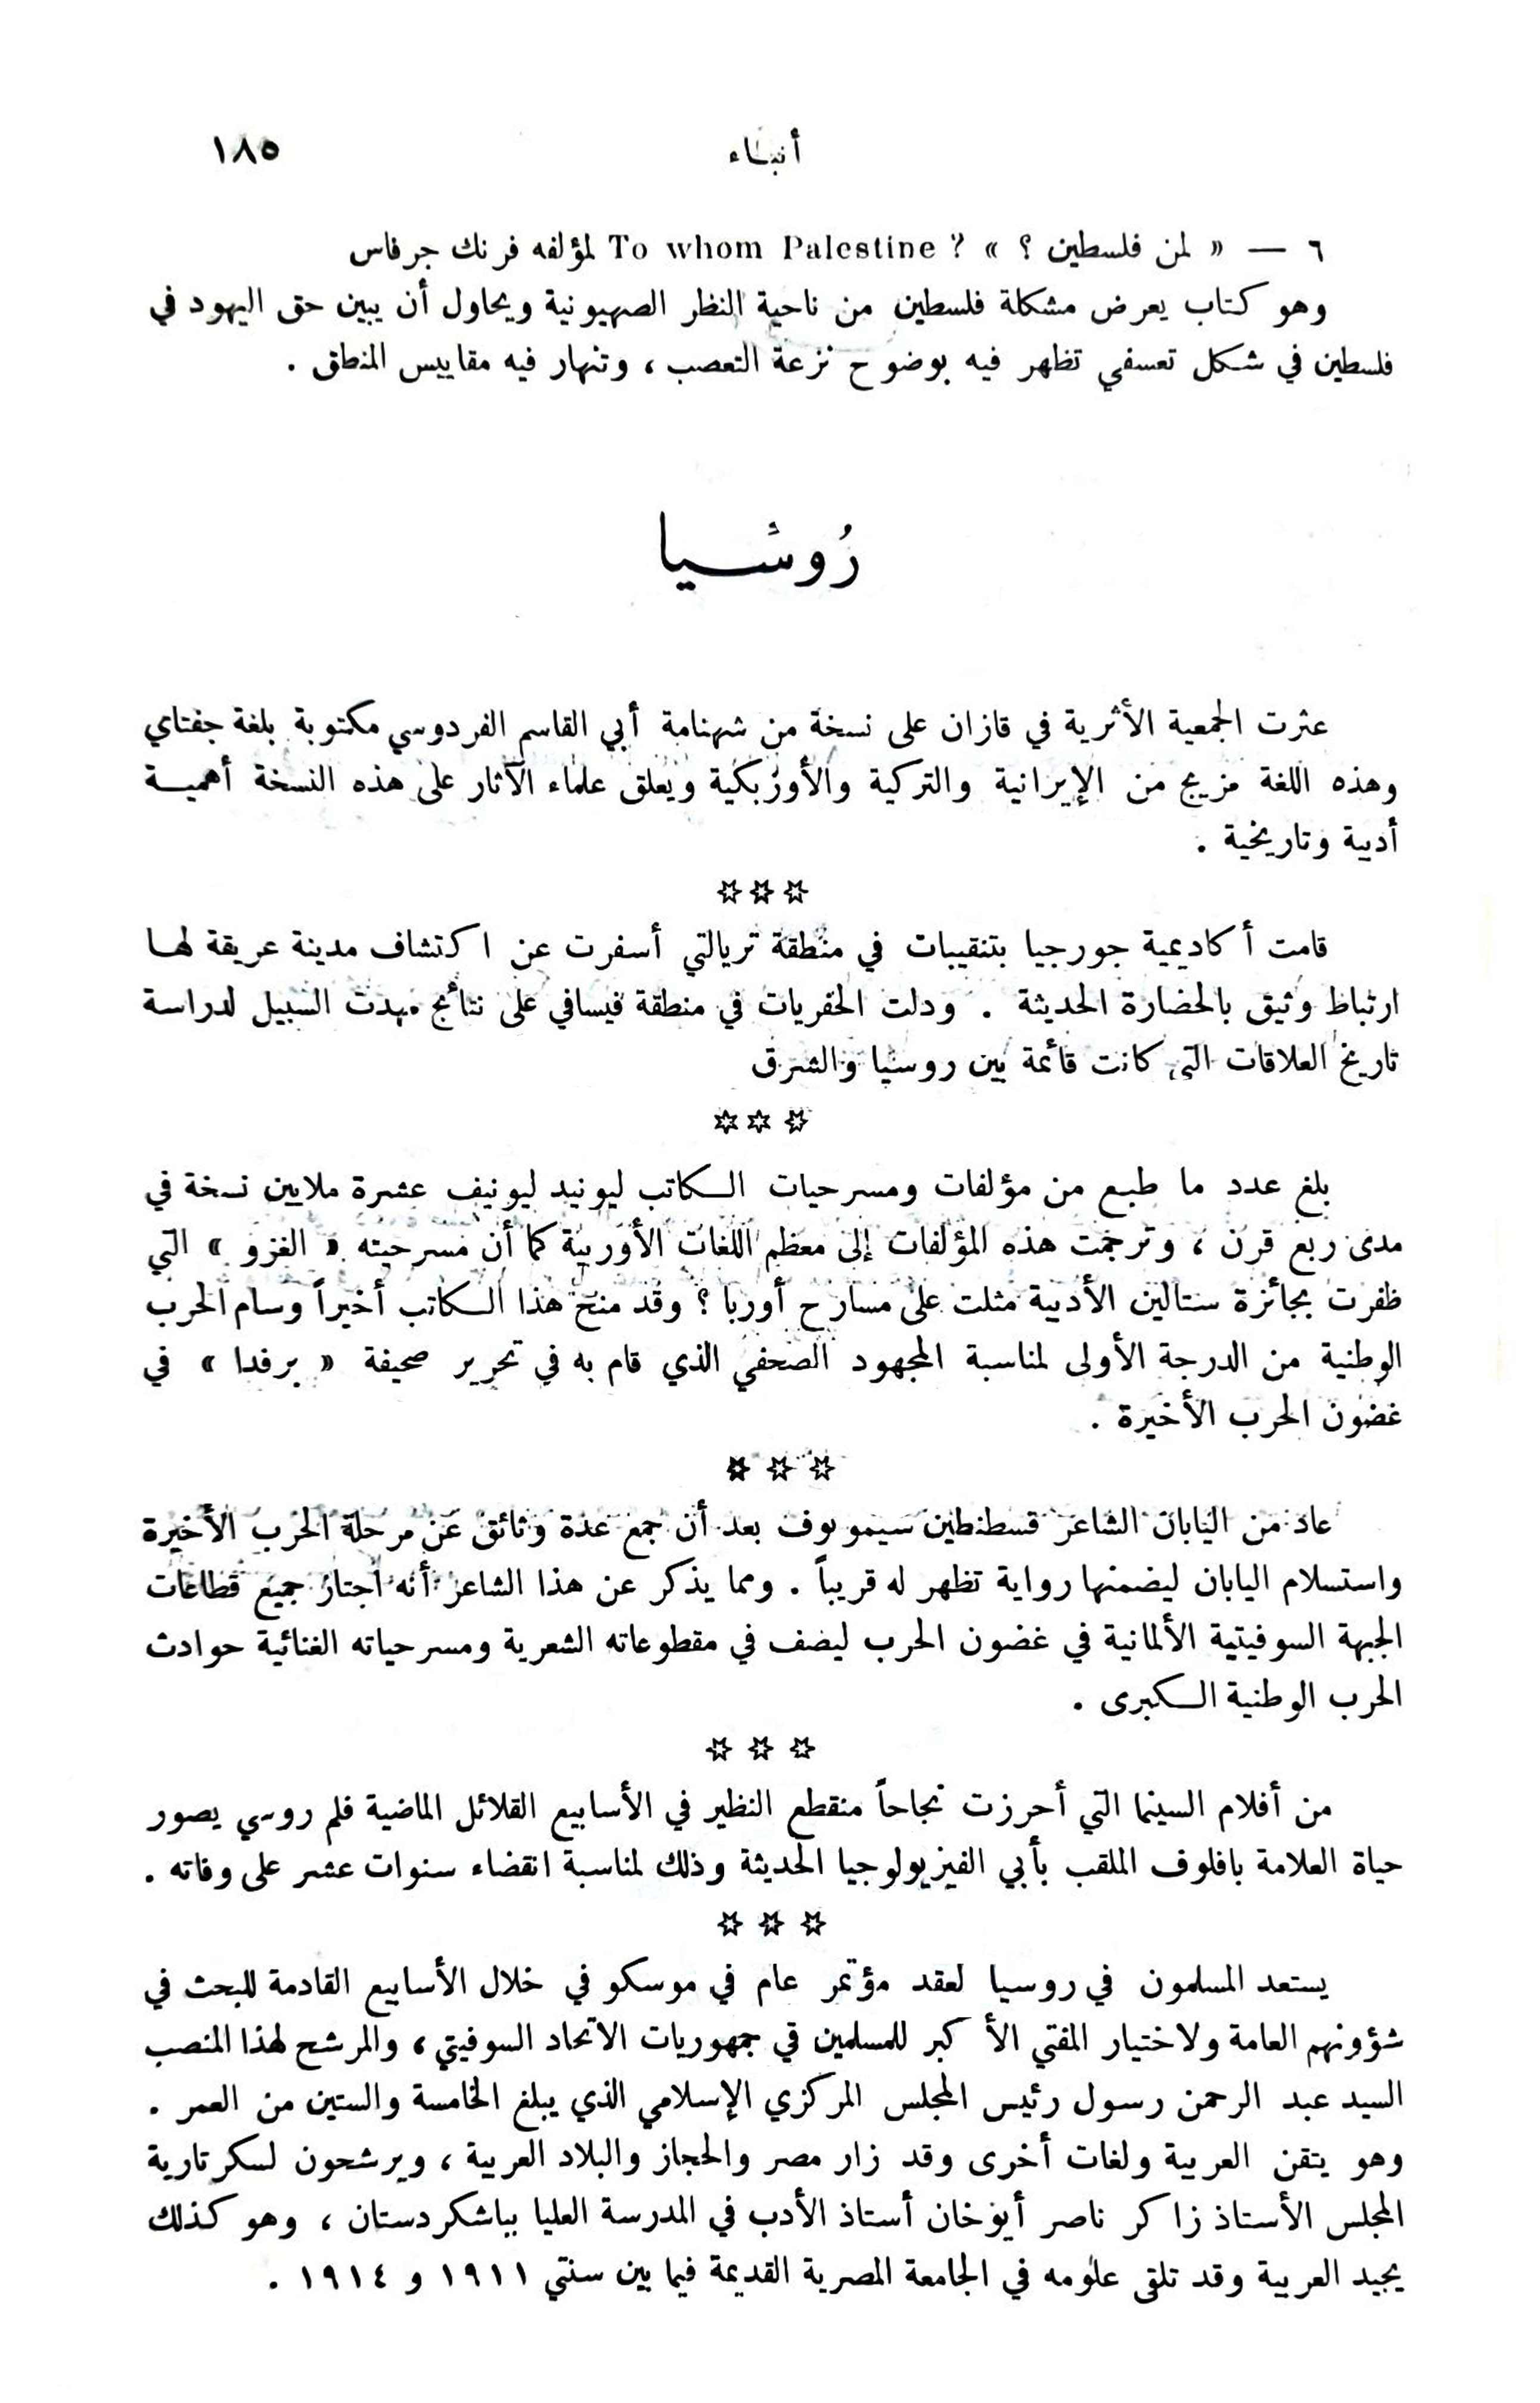 أنباء ١٨٥
٦ — « لمن فلسطين ؟ » To whom Palestine ? لمؤلفه فرنك جرفاس
وهو كتاب يعرض مشكلة فلسطين من ناحية النظر الصهيونية ويحاول أن يبين حق اليهود في
فلسطين في شكل تعسفي تظهر فيه بوضوح نزعة التعصب ، وتنهار فيه مقاييس المنطق .
رُوسْيا
عثرت الجمعية الأثرية في قازان على نسخة من شهنامة أبي القاسم الفردوسي مكتوبة بلغة جفتاي
وهذه اللغة مزيج من الإيرانية والتركية والأوزبكية ويعلق علماء الآثار على هذه النسخة أهمية
أدبية وتاريخية .
***
قامت أكاديمية جورجيا بتنقيبات في منطقة تريالتي أسفرت عن اكتشاف مدينة عريقة لها
ارتباط وثيق بالحضارة الحديثة . ودلت الحفريات في منطقة فيسافي على نتائج مهدت السبيل لدراسة
تاريخ العلاقات التي كانت قائمة بين روسيا والشرق
***
بلغ عدد ما طبع من مؤلفات ومسرحيات الكاتب ليونيد ليونيف عشرة ملايين نسخة في
مدى ربع قرن ، وترجمت هذه المؤلفات إلى معظم اللغات الأوربية كما أن مسرحيته « الغزو » التي
ظفرت بجائزة ستالين الأدبية مثلت على مسارح أوربا ؟ وقد منح هذا الكاتب أخيراً وسام الحرب
الوطنية من الدرجة الأولى لمناسبة المجهود الصحفي الذي قام به في تحرير صحيفة « برفدا » في
غضون الحرب الأخيرة .
* * *
عاد من اليابان الشاعر قسطنطين سيمونوف بعد أن جمع عدة وثائق عن مرحلة الحرب الأخيرة
واستسلام اليابان ليضمنها رواية تظهر له قريباً . ومما يذكر عن هذا الشاعر أنه اجتاز جميع قطاعات
الجبهة السوفيتية الألمانية في غضون الحرب ليصف في مقطوعاته الشعرية ومسرحياته الغنائية حوادث
الحرب الوطنية الكبرى .
* * *
من أفلام السينما التي أحرزت نجاحاً منقطع النظير في الأسابيع القلائل الماضية فلم روسي يصور
حياة العلامة بافلوف الملقب بأبي الفيزيولوجيا الحديثة وذلك لمناسبة انقضاء سنوات عشر على وفاته .
* * *
يستعد المسلمون في روسيا لعقد مؤتمر عام في موسكو في خلال الأسابيع القادمة للبحث في
شؤونهم العامة ولاختيار المفتي الأكبر للمسلمين في جمهوريات الاتحاد السوفيتي ، والمرشح لهذا المنصب
السيد عبد الرحمن رسول رئيس المجلس المركزي الإسلامي الذي يبلغ الخامسة والستين من العمر .
وهو يتقن العربية ولغات أخرى وقد زار مصر والحجاز والبلاد العربية ، ويرشحون لسكرتارية
المجلس الأستاذ زاكر ناصر أيوخان أستاذ الأدب في المدرسة العليا بباشكردستان ، وهو كذلك
يجيد العربية وقد تلقى علومه في الجامعة المصرية القديمة فيما بين سنتي ١٩١١ و ١٩١٤ .